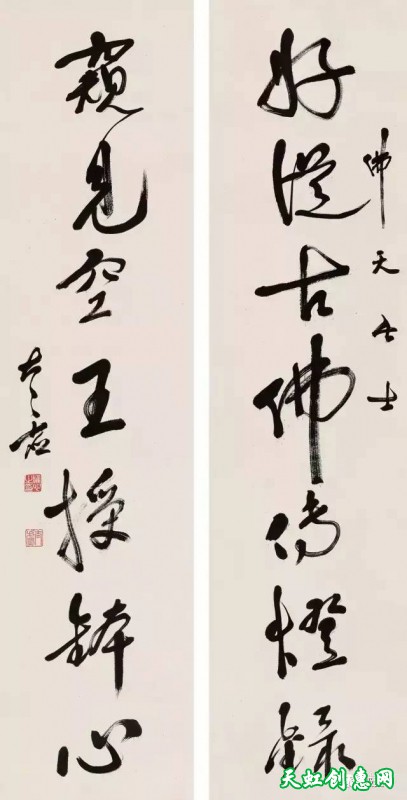 佛天居士
好從古佛傳燈錄
窺見空王授鉢心
天虹创意网